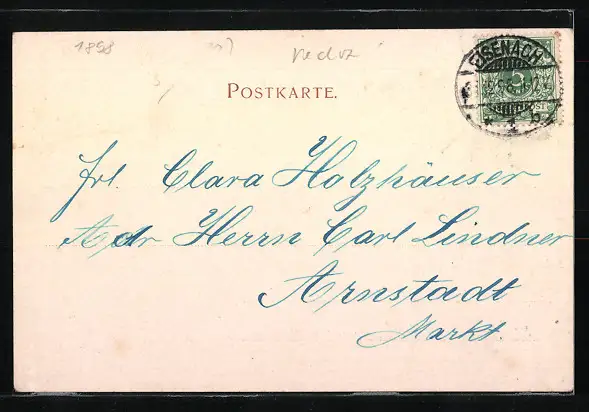 1898
EISENACH
POSTKARTE.
Frl. Clara Holzhäuser
Adr Herrn Carl Lindner
Arnstadt
Markt.